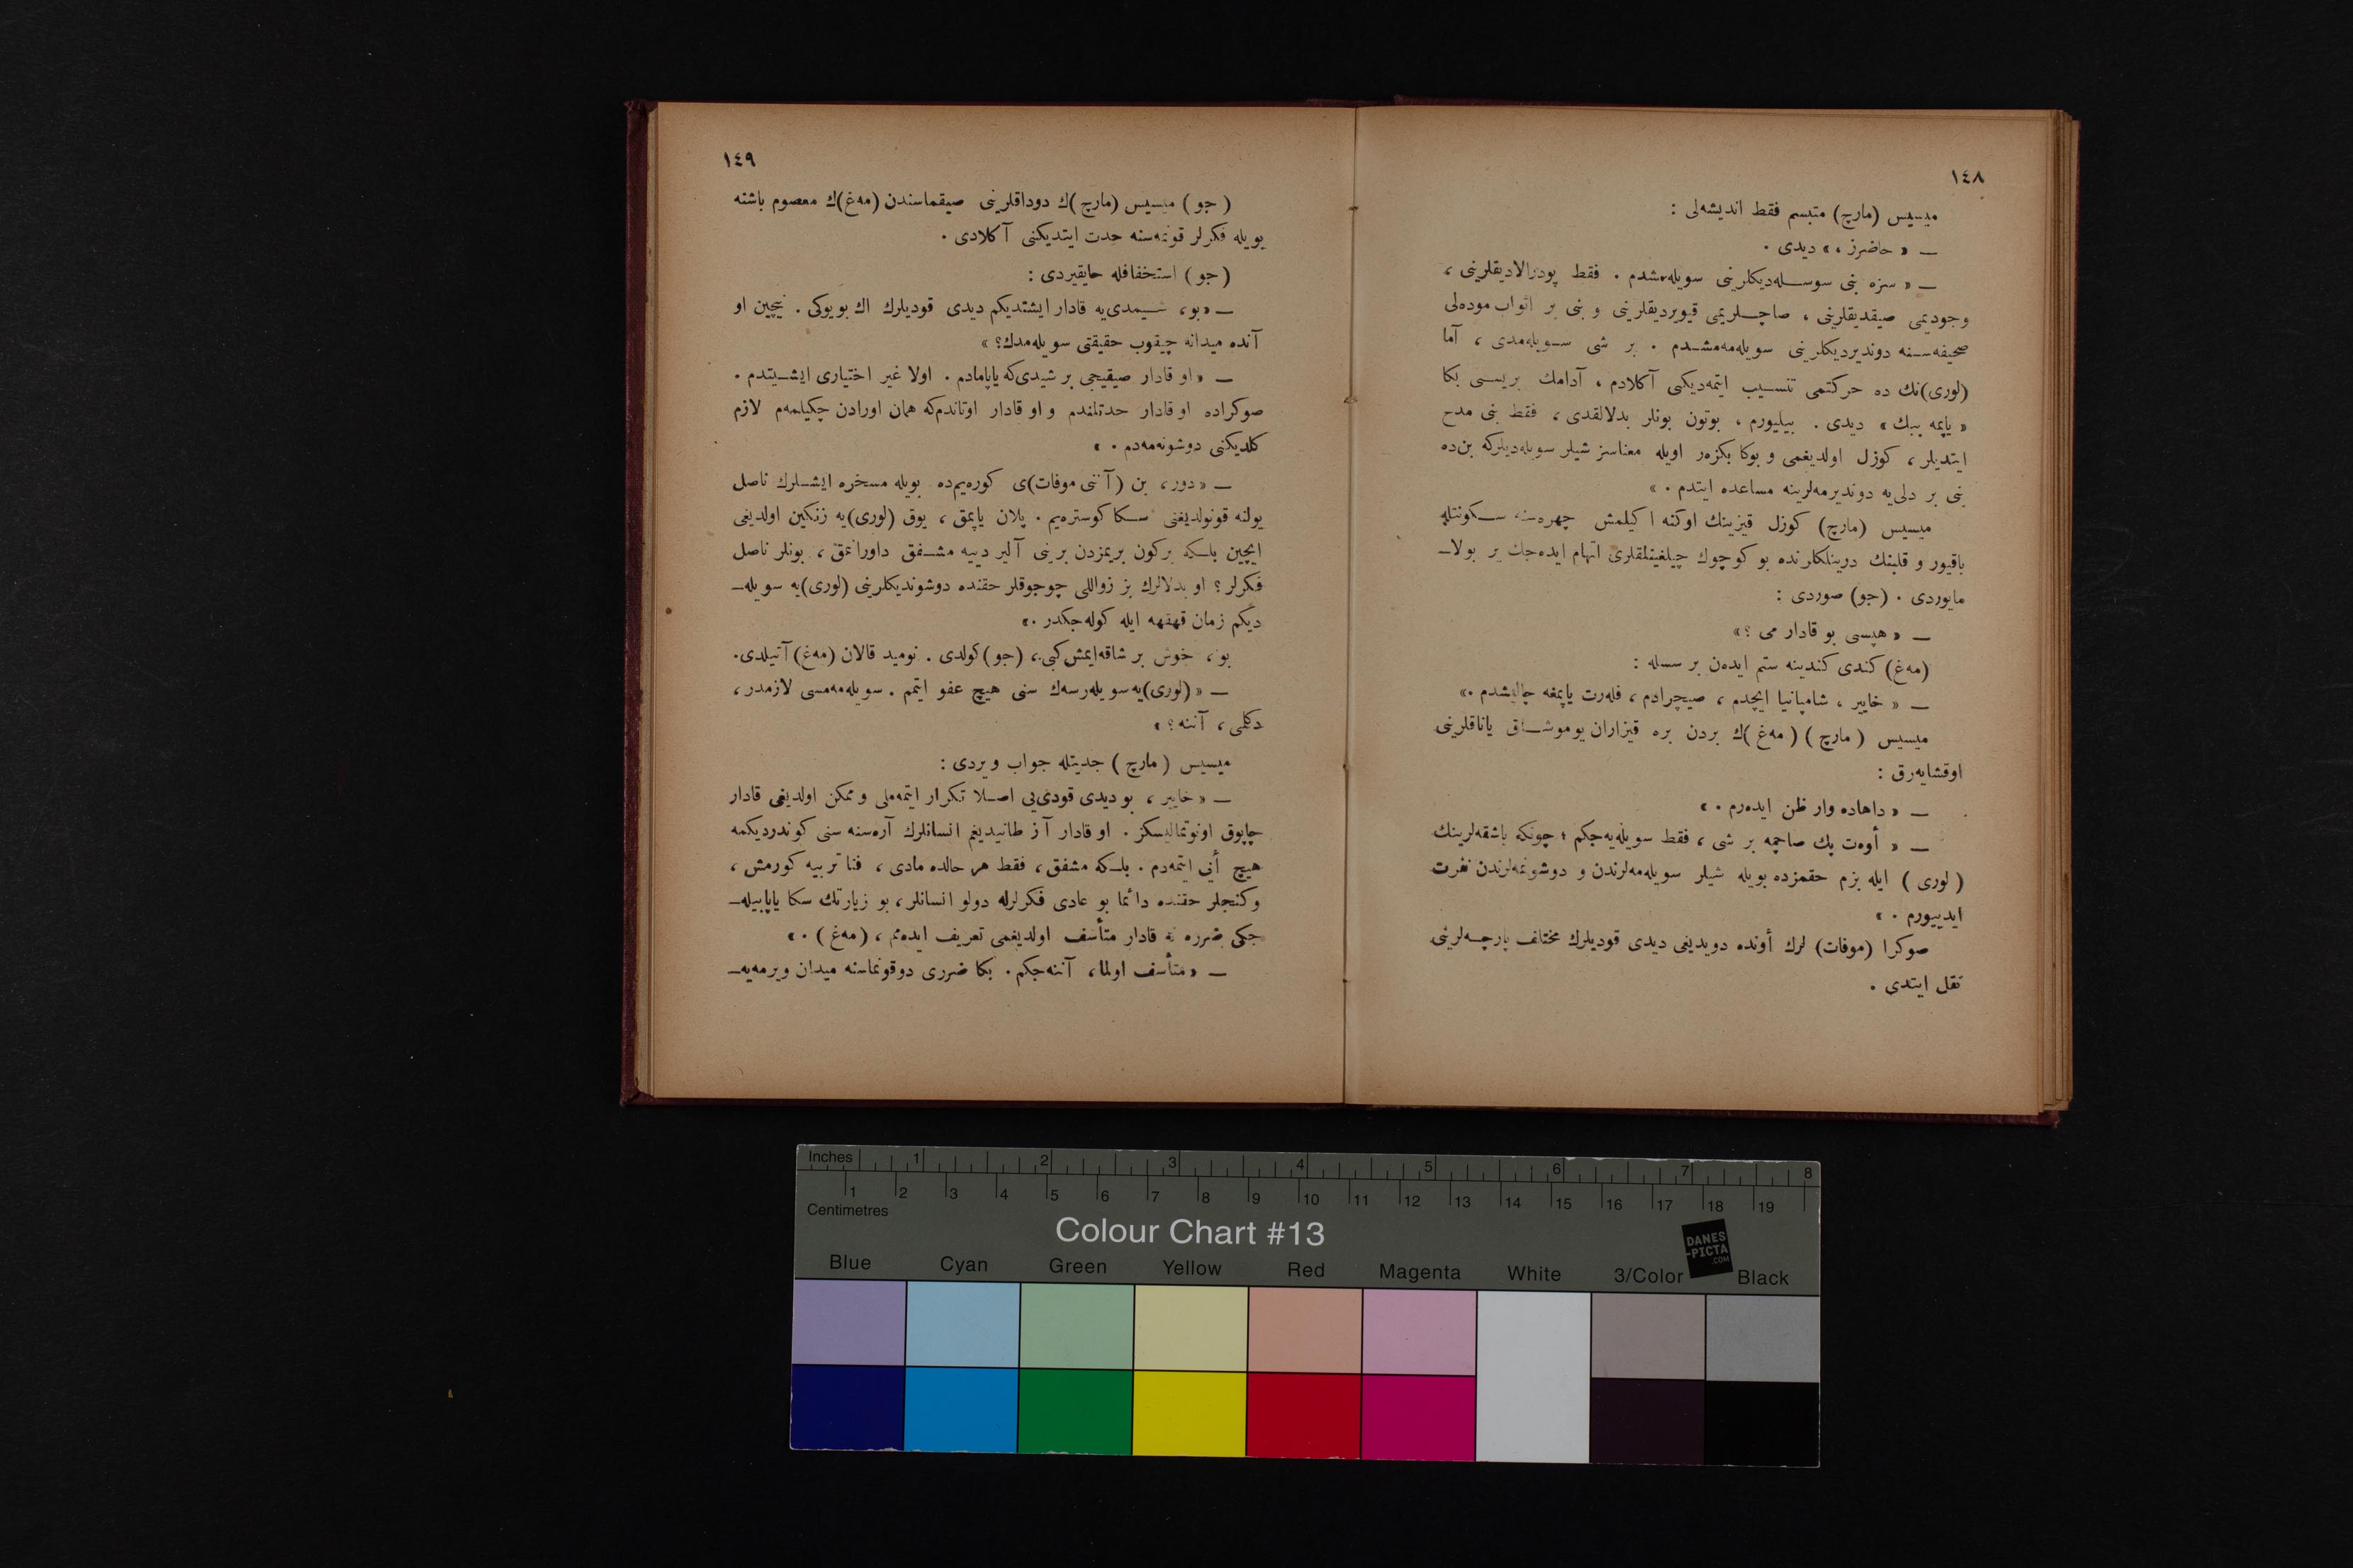 ١٤٨
ميسيس (مارچ) متبسم فقط انديشه‌لی :
— « حاضرز ، » ديدی .
— « سزه بنی سوسـله‌ديكلرينی سويله‌مشدم . فقط پودرالاديقلرينی ،
وجوديمی صيقديقلرينی ، صاچـلريمی قيويرديقلرينی و بنی بر اثواب موده‌لی
صحيفه‌سـنه دونديرديكلرينی سويله‌مه‌مشـدم . بر شی سـويله‌مدی ، آما
(لوری)نك ده حركتمی تنسـيب ايتمه‌ديكنی آكلادم ، آدامك بريسـی بكا
« ياپمه ببك » ديدی . بيليورم ، بوتون بونلر بدلالقدی ، فقط بنی مدح
ايتديلر ، كوزل اولديغمی و بوكا بكزه‌ر اويله معناسز شيلر سويله‌ديلركه بن‌ده
بنی بر دلی‌يه دونديرمه‌لرينه مساعده ايتدم . »
ميسيس (مارچ) كوزل قيزينك اوكنه اكيلمش چهره‌سنه سـكونتله
باقيور و قلبنك درينلكلرنده بو كوچوك چيلغينلقلری اتهام ايده‌جك ير بولاـ
مايوردی . (جو) صوردی :
— « هپسی بو قادار می ؟»
(مه‌غ) كندی كندينه ستم ايده‌ن بر سسله :
— « خاير ، شامپانيا ايچدم ، صيچرادم ، فله‌رت ياپمغه چاليشدم .»
ميسيس ( مارچ ) ( مه‌غ )ك بردن بره قيزاران يوموشـاق ياناقلرينی
اوقشايه‌رق :
— « داهاده وار ظن ايده‌رم . »
— « أوه‌ت پك صاچمه بر شی ، فقط سويليه‌يه‌جكم ؛ چونكه باشقه‌لرينك
( لوری ) ايله بزم حقمزده بويله شيلر سويله‌مه‌لرندن و دوشونمه‌لرندن نفرت
ايدييورم . »
صوكرا (موفات) لرك أونده دويديغی ديدی قوديلرك مختلف پارچـه‌لرينی
نقل ايتدی .
١٤٩
( جو ) ميسيس (مارچ)ك دوداقلرينی صيقماسندن (مه‌غ)ك معصوم باشنه
بويله فكرلر قونمه‌سنه حدت ايتديكنی آكلادی .
( جو ) استخفافله حايقيردی :
— «بو ، شـيمدی‌يه قادار ايشتديكم ديدی قوديلرك اك بويوكی . نيچين او
آنده ميدانه چيقوب حقيقتی سويله‌مدك؟ »
— « او قادار صيقيجی بر شيدی‌كه ياپامادم . اولا غير اختياری ايشـيتدم .
صوكراده او قادار حدتلندم و او قادار اوتاندم‌كه همان اورادن چكيلمه‌م لازم
كلديكنی دوشونه‌مه‌دم . »
— «دور ، بن (آننی موفات)ی كوره‌يم‌ده بويله مسخره ايشـلرك ناصل
يولنه قونولديغنی سـكا كوستره‌يم . پلان ياپمق ، يوق (لوری)يه زنكين اولديغی
ايچين بلـكه بركون بريمزدن برينی آلير دييه مشـفق داورانمق ، بونلر ناصل
فكرلر ؟ او بدلالرك بز زواللی چوجوقلر حقنده دوشونديكلرينی (لوری)يه سويله‌ـ
ديكم زمان قهقهه ايله كوله‌جكدر .»
بو ، خوش بر شاقه‌ايمش كبی ، (جو) كولدی . نوميد قالان (مه‌غ) آتيلدی.
— « (لوری)يه سويلرسه‌ك سنی هيچ عفو ايتمم . سويله‌مه‌مسی لازمدر ،
دكلمی ، آننه ؟ »
ميسيس ( مارچ ) جديتله جواب ويردی :
— « خاير ، بو ديدی قودی‌يی اصـلا تكرار ايتمه‌ملی و ممكن اولديغی قادار
چاپوق اونوتماليسكز . او قادار آز طانيديغم انسانلرك آره‌سنه سنی كوندرديكمه
هيچ أيی ايتمه‌دم . بلـكه مشفق ، فقط هر حالده مادی ، فنا تربيه كورمش ،
و كنجلر حقنده دائما بو عادی فكرلرله دولو انسانلر ، بو زيارتك سكا ياپابيله‌ـ
جكی ضرره نه قادار متأسف اولديغمی تعريف ايده‌مم ، (مه‌غ) . »
— « متأسف اولما ، آننه‌جكم . بكا ضرری دوقونماسنه ميدان ويرمه‌يه‌ـ
Inches 1 2 3 4 5 6 7 8
1 2 3 4 5 6 7 8 9 10 11 12 13 14 15 16 17 18 19
Centimetres
Colour Chart #13
DANES
-PICTA
.COM
Blue Cyan Green Yellow Red Magenta White 3/Color Black